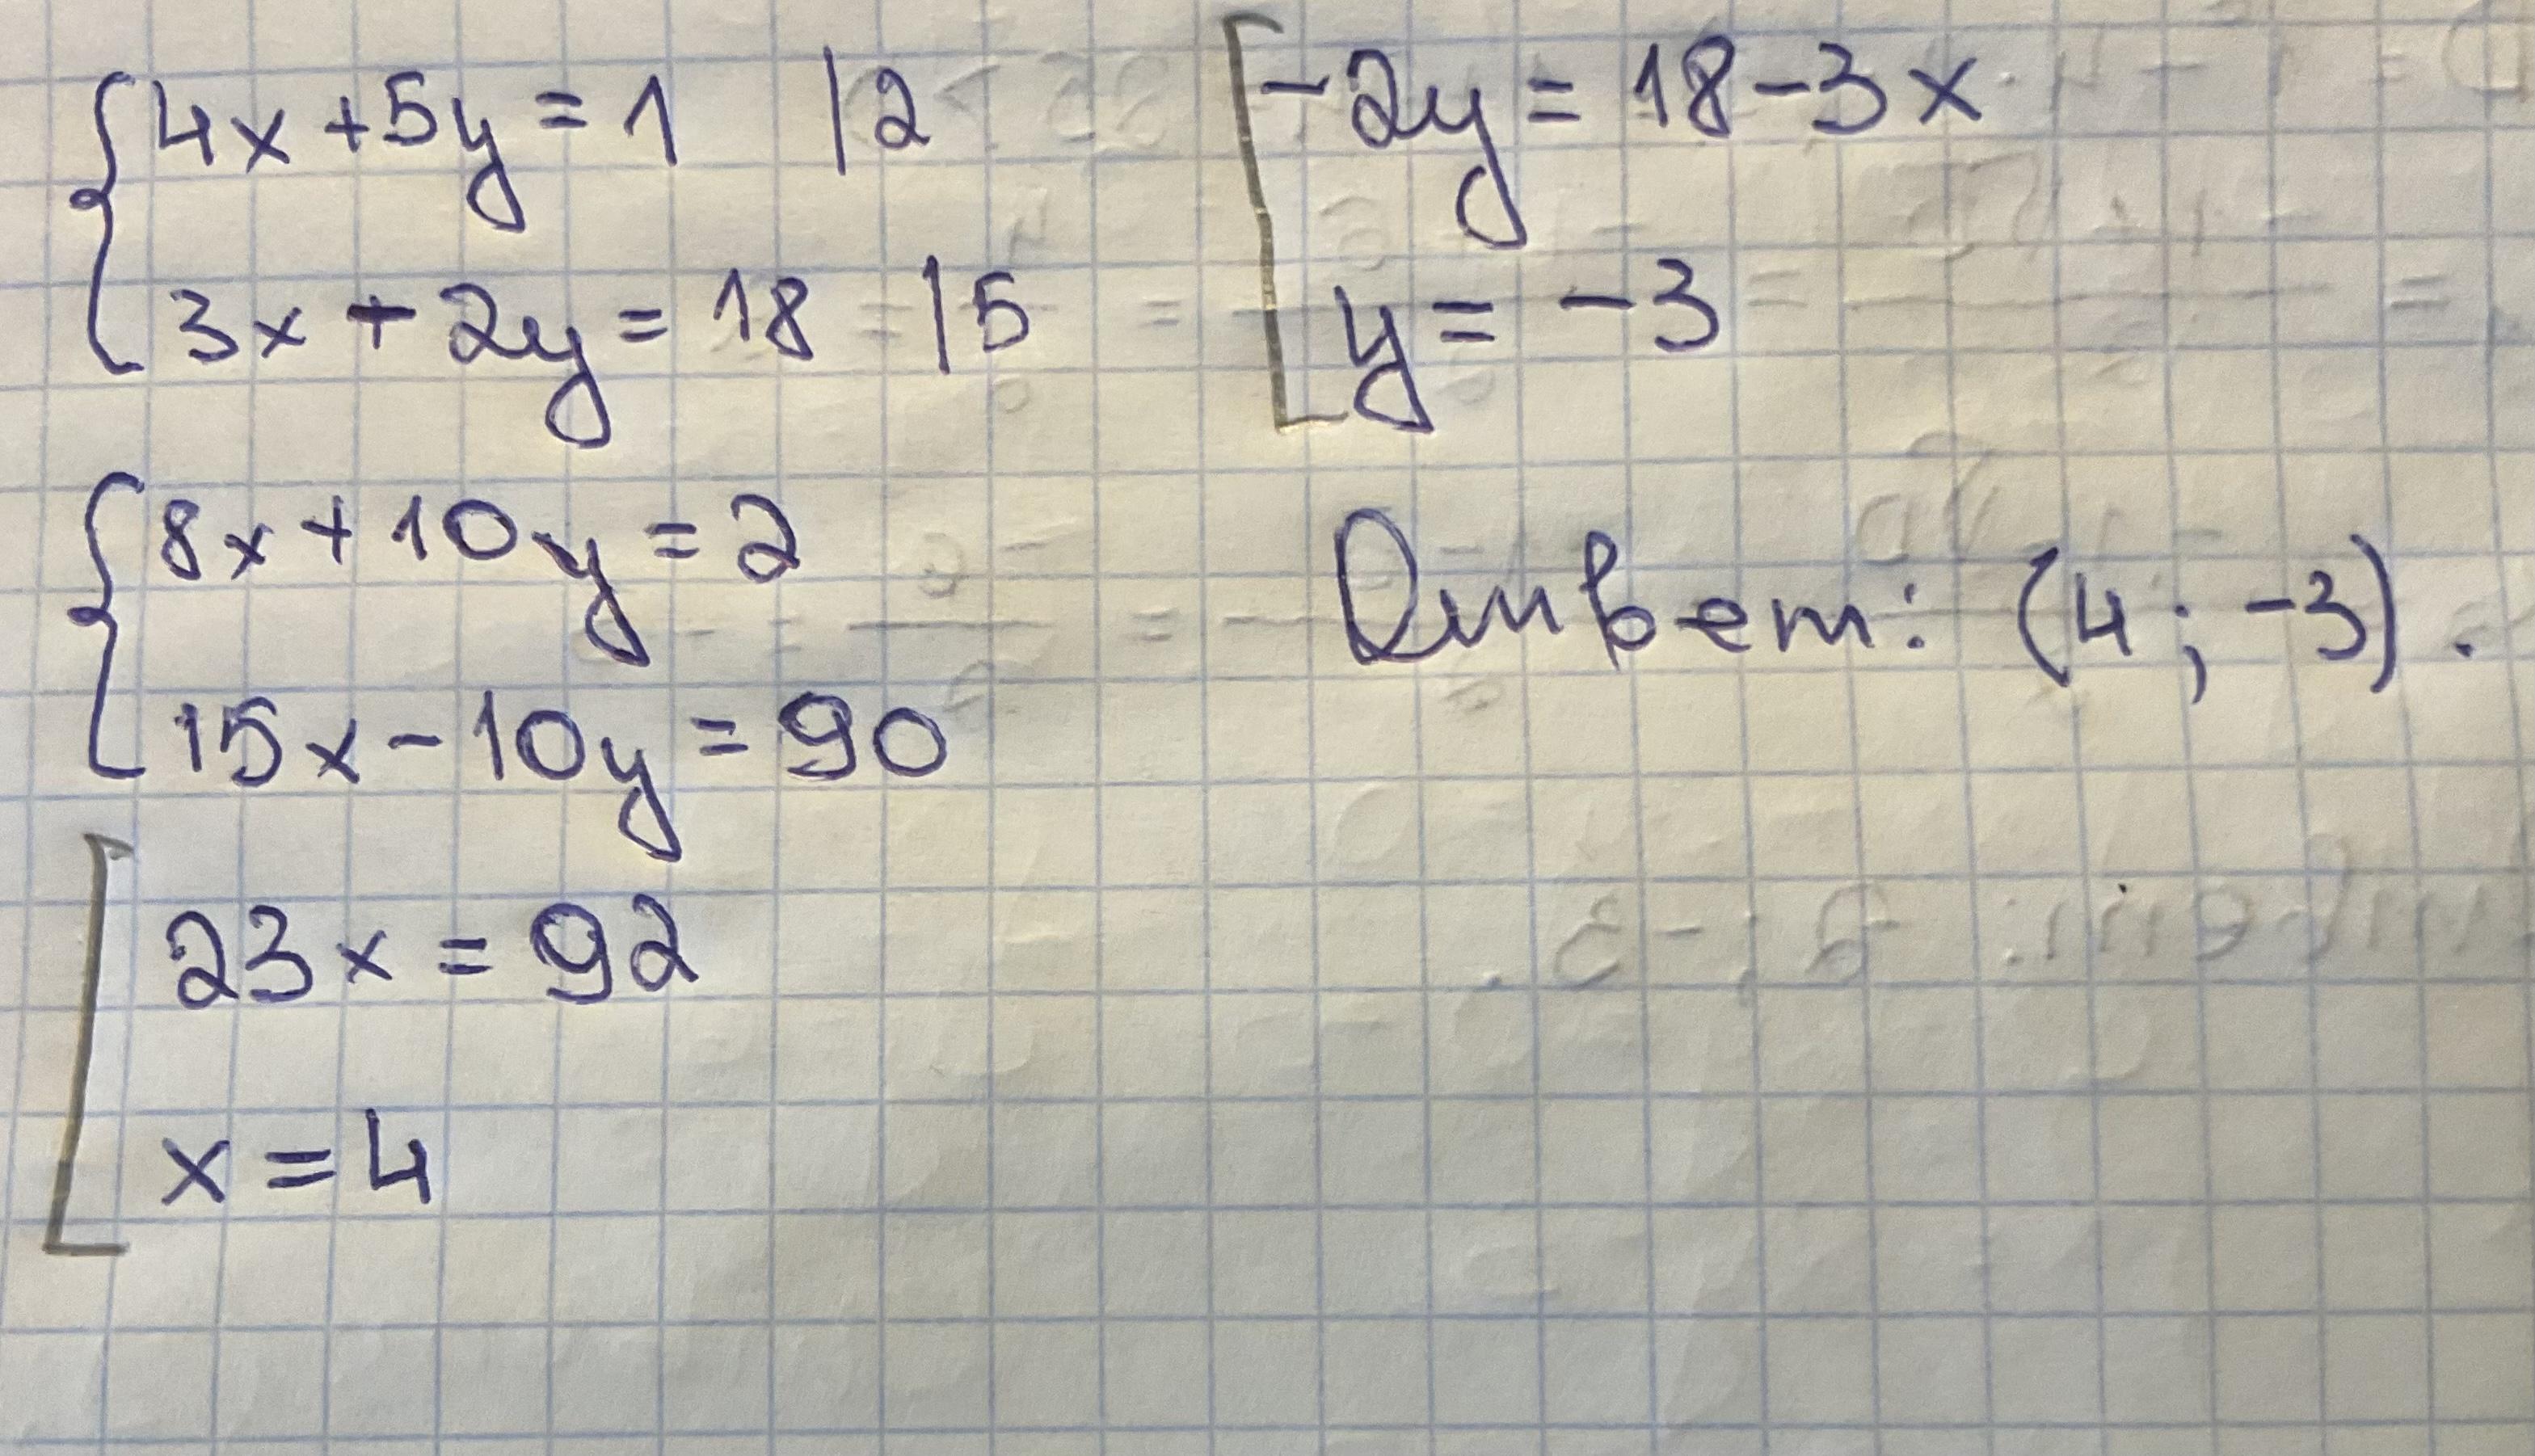 4x+5y=1 |2
3x-2y=18 |5
8x+10y=2
15x-10y=90
23x=92
x=4
-2y=18-3x
y=-3
Ответ: (4;-3).